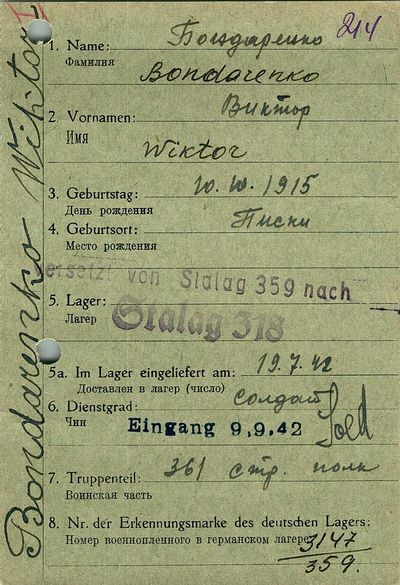 I
214
Bondarenko Wiktor
1. Name: Бондаренко
Фамилия
Bondarenko
2. Vornamen: Виктор
Имя
Wiktor
3. Geburtstag: 10. 10. 1915
День рождения
4. Geburtsort: Писки
Место рождения
versetzt von Stalag 359 nach
5. Lager:
Лагер Stalag 318
5a. Im Lager eingeliefert am: 19.7.42
Доставлен в лагер (число)
6. Dienstgrad: солдат
Чин Sold
Eingang 9.9.42
7. Truppenteil: 361 стр. полк
Воинская часть
8. Nr. der Erkennungsmarke des deutschen Lagers:
Номер военнопленного в германском лагере
3147
359.